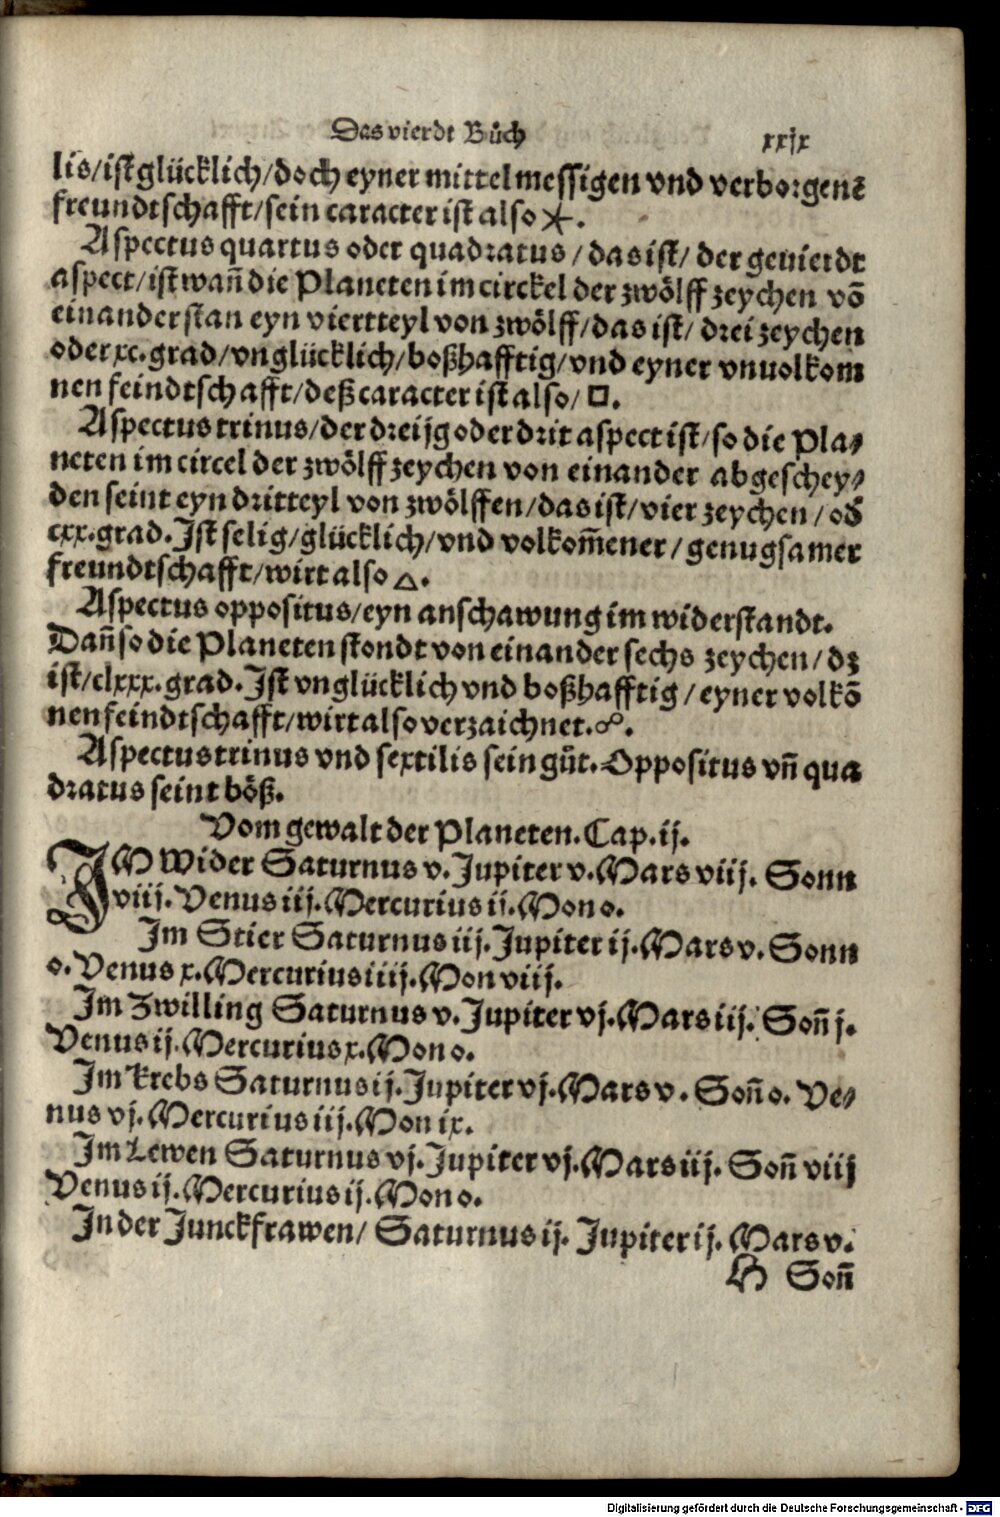 Das vierdt Bůch xxjx
lis/ist glücklich/doch eyner mittelmessigen vnd verborgenẽ
freundtschafft/sein caracter ist also ⚹.
Aspectus quartus oder quadratus/das ist/der geuierdt
aspect/ist wañ die Planeten im circkel der zwölff zeychen võ
einander stan eyn viertteyl von zwölff/das ist/drei zeychen
oder xc.grad/vnglücklich/boßhafftig/vnd eyner vnuolkom
nen feindtschafft/deß caracter ist also/□.
Aspectus trinus/der dreijg oder drit aspect ist/so die Pla⸗
neten im circel der zwölff zeychen von einander abgeschey⸗
den seint eyn dritteyl von zwölffen/das ist/vier zeychen/od̃
cxx.grad.Ist selig/glücklich/vnd volkom̃ener/genugsamer
freundtschafft/wirt also △.
Aspectus oppositus/eyn anschawung im widerstandt.
Dañ so die Planeten stondt von einander sechs zeychen/dz
ist/clxxx.grad.Ist vnglücklich vnd boßhafftig/eyner volkõ
nen feindtschafft/wirt also verzaichnet.☍.
Aspectus trinus vnd sextilis sein gůt.Oppositus vñ qua
dratus seint böß.
Vom gewalt der Planeten.Cap.ij.
IM Wider Saturnus v.Jupiter v.Mars viij. Sonn
viij.Venus iij.Mercurius ij.Mon o.
Im Stier Saturnus iij.Jupiter ij.Mars v. Sonn
o.Venus x.Mercurius iiij.Mon viij.
Im Zwilling Saturnus v.Jupiter vj.Mars iij. Soñ j.
Venus ij.Mercurius x.Mon o.
Im Krebs Saturnus ij.Jupiter vj.Mars v. Soñ o. Ve⸗
nus vj.Mercurius iij.Mon ix.
Im Lewen Saturnus vj.Jupiter vj.Mars iij. Soñ viij
Venus ij.Mercurius ij.Mon o.
In der Junckfrawen/ Saturnus ij. Jupiter ij. Mars v.
H Soñ
Digitalisierung gefördert durch die Deutsche Forschungsgemeinschaft - DFG